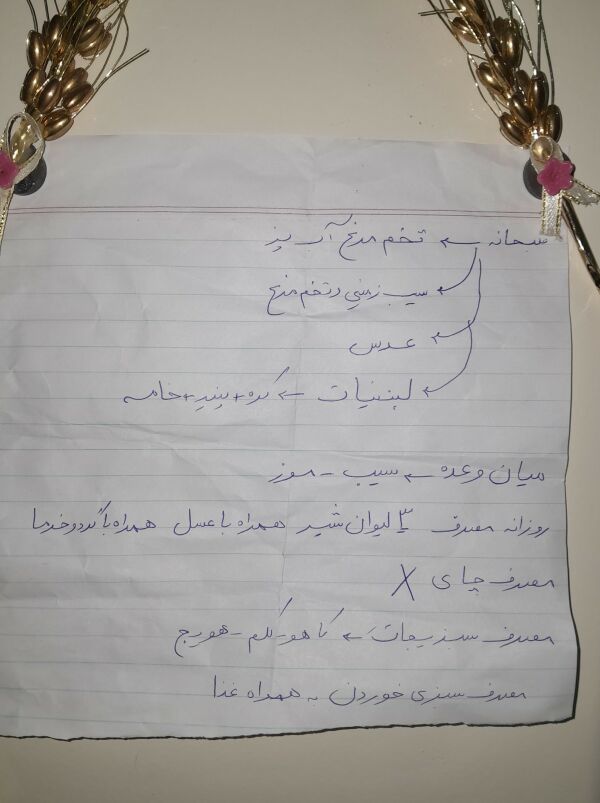 صبحانه ← تخم مرغ آب پز
← سیب زمینی و تخم مرغ
← عدس
← لبنیات ← کره + پنیر + خامه
میان وعده ← سیب - موز
روزانه مصرف ۳ لیوان شیر همراه با عسل همراه با گردو و خرما
مصرف چای X
مصرف سبزیجات ← کاهو - کلم - هویج
مصرف سبزی خوردن به همراه غذا